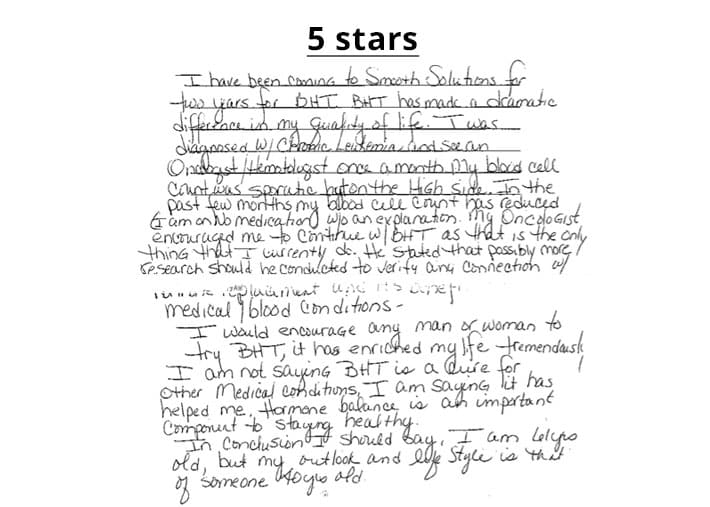 5 stars
I have been coming to Smooth Solutions for
two years for BHT. BHT has made a dramatic
difference in my Quality of life. I was
diagnosed w/ Chronic Leukemia, and see an
Oncologist/Hematologist once a month. My blood cell
Count was sporatic but on the High Side. In the
past few months my blood cell count has reduced
(I am on No medication) w/o an explanation. My Oncologist
encouraged me to Continue w/ BHT as that is the only
thing that I currently do. He stated that possibly more
research should be conducted to verify any Connection w/
replacement and its
medical / blood Conditions-
I would encourage any man or woman to
try BHT, it has enriched my life tremendously
I am not saying BHT is a Cure for
other Medical conditions, I am saying it has
helped me. Hormone balance is an important
Component to staying healthy.
In Conclusion I should say, I am yrs
old, but my outlook and life Style is that
of someone 40 yrs old.